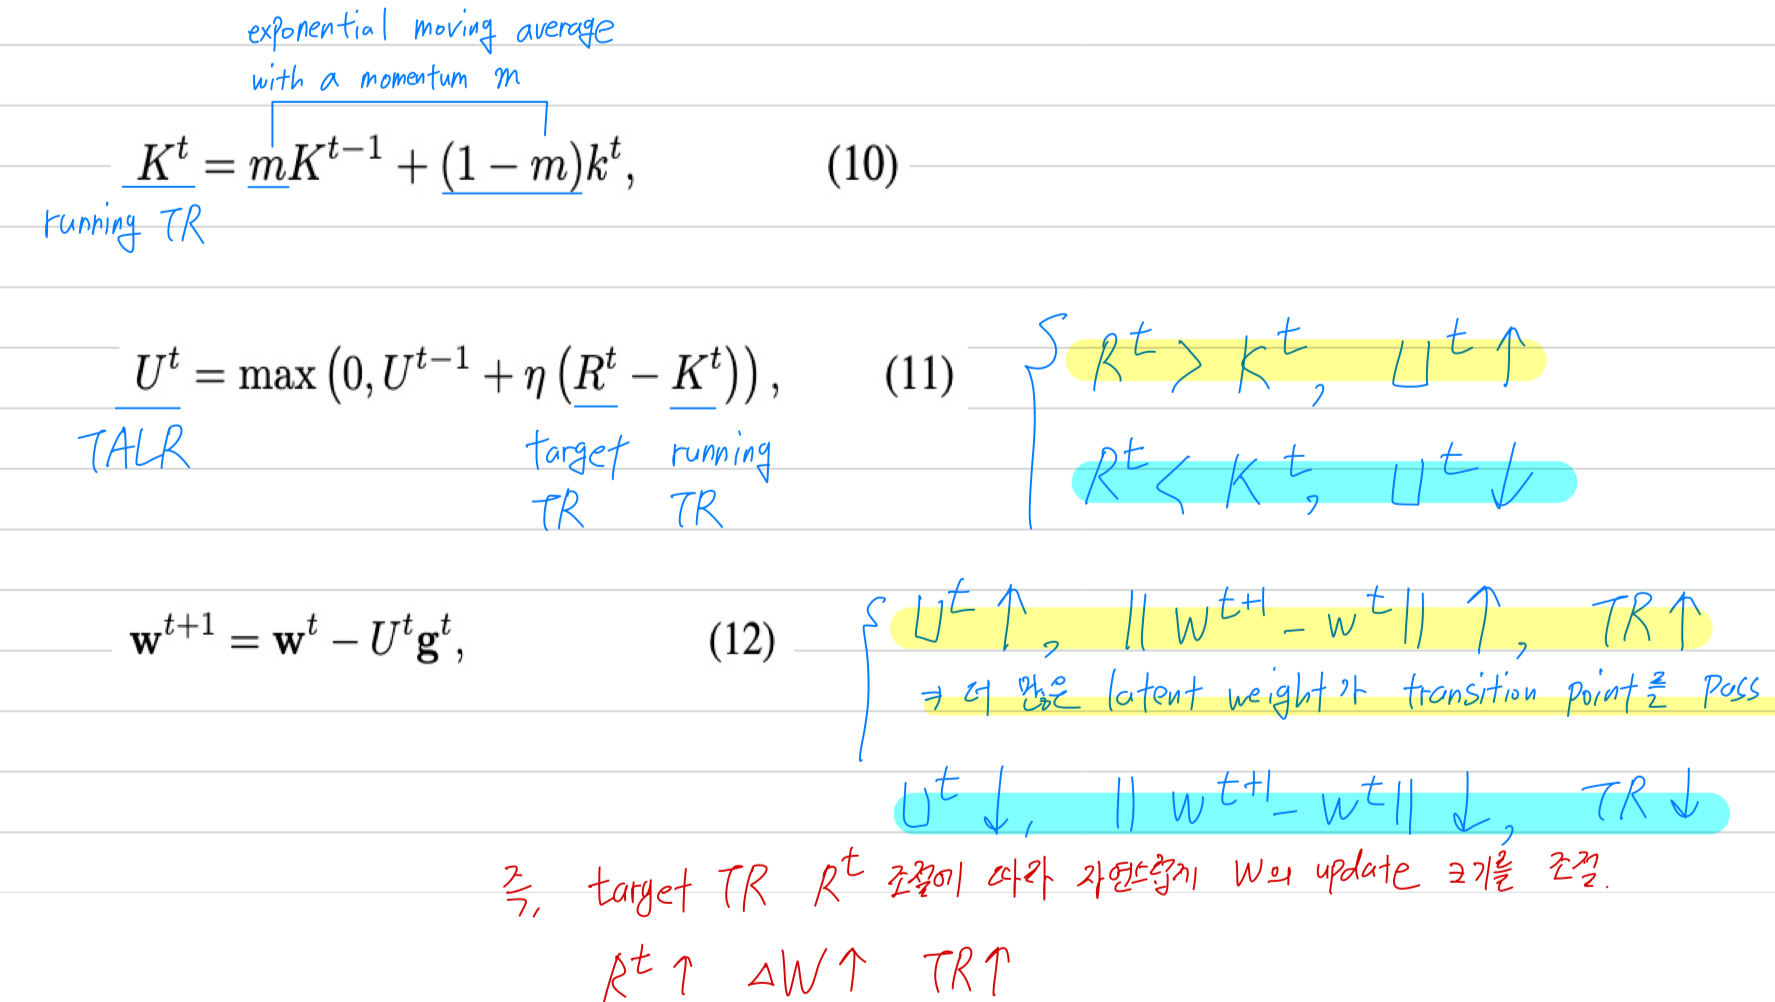 exponential moving average
with a momentum m
K^t = mK^{t−1} + (1 − m)k^t, (10)
running TR
U^t = max (0, U^{t−1} + η (R^t − K^t)) , (11)
TALR target TR running TR
R^t > K^t, U^t ↑
R^t < K^t, U^t ↓
w^{t+1} = w^t − U^t g^t, (12)
U^t ↑, || w^{t+1} − w^t || ↑, TR ↑
⇒ 더 많은 latent weight가 transition point를 pass
U^t ↓, || w^{t+1} − w^t || ↓, TR ↓
즉, target TR R^t 조절에 따라 자연스럽게 W의 update 크기를 조절.
R^t ↑ △W ↑ TR ↑